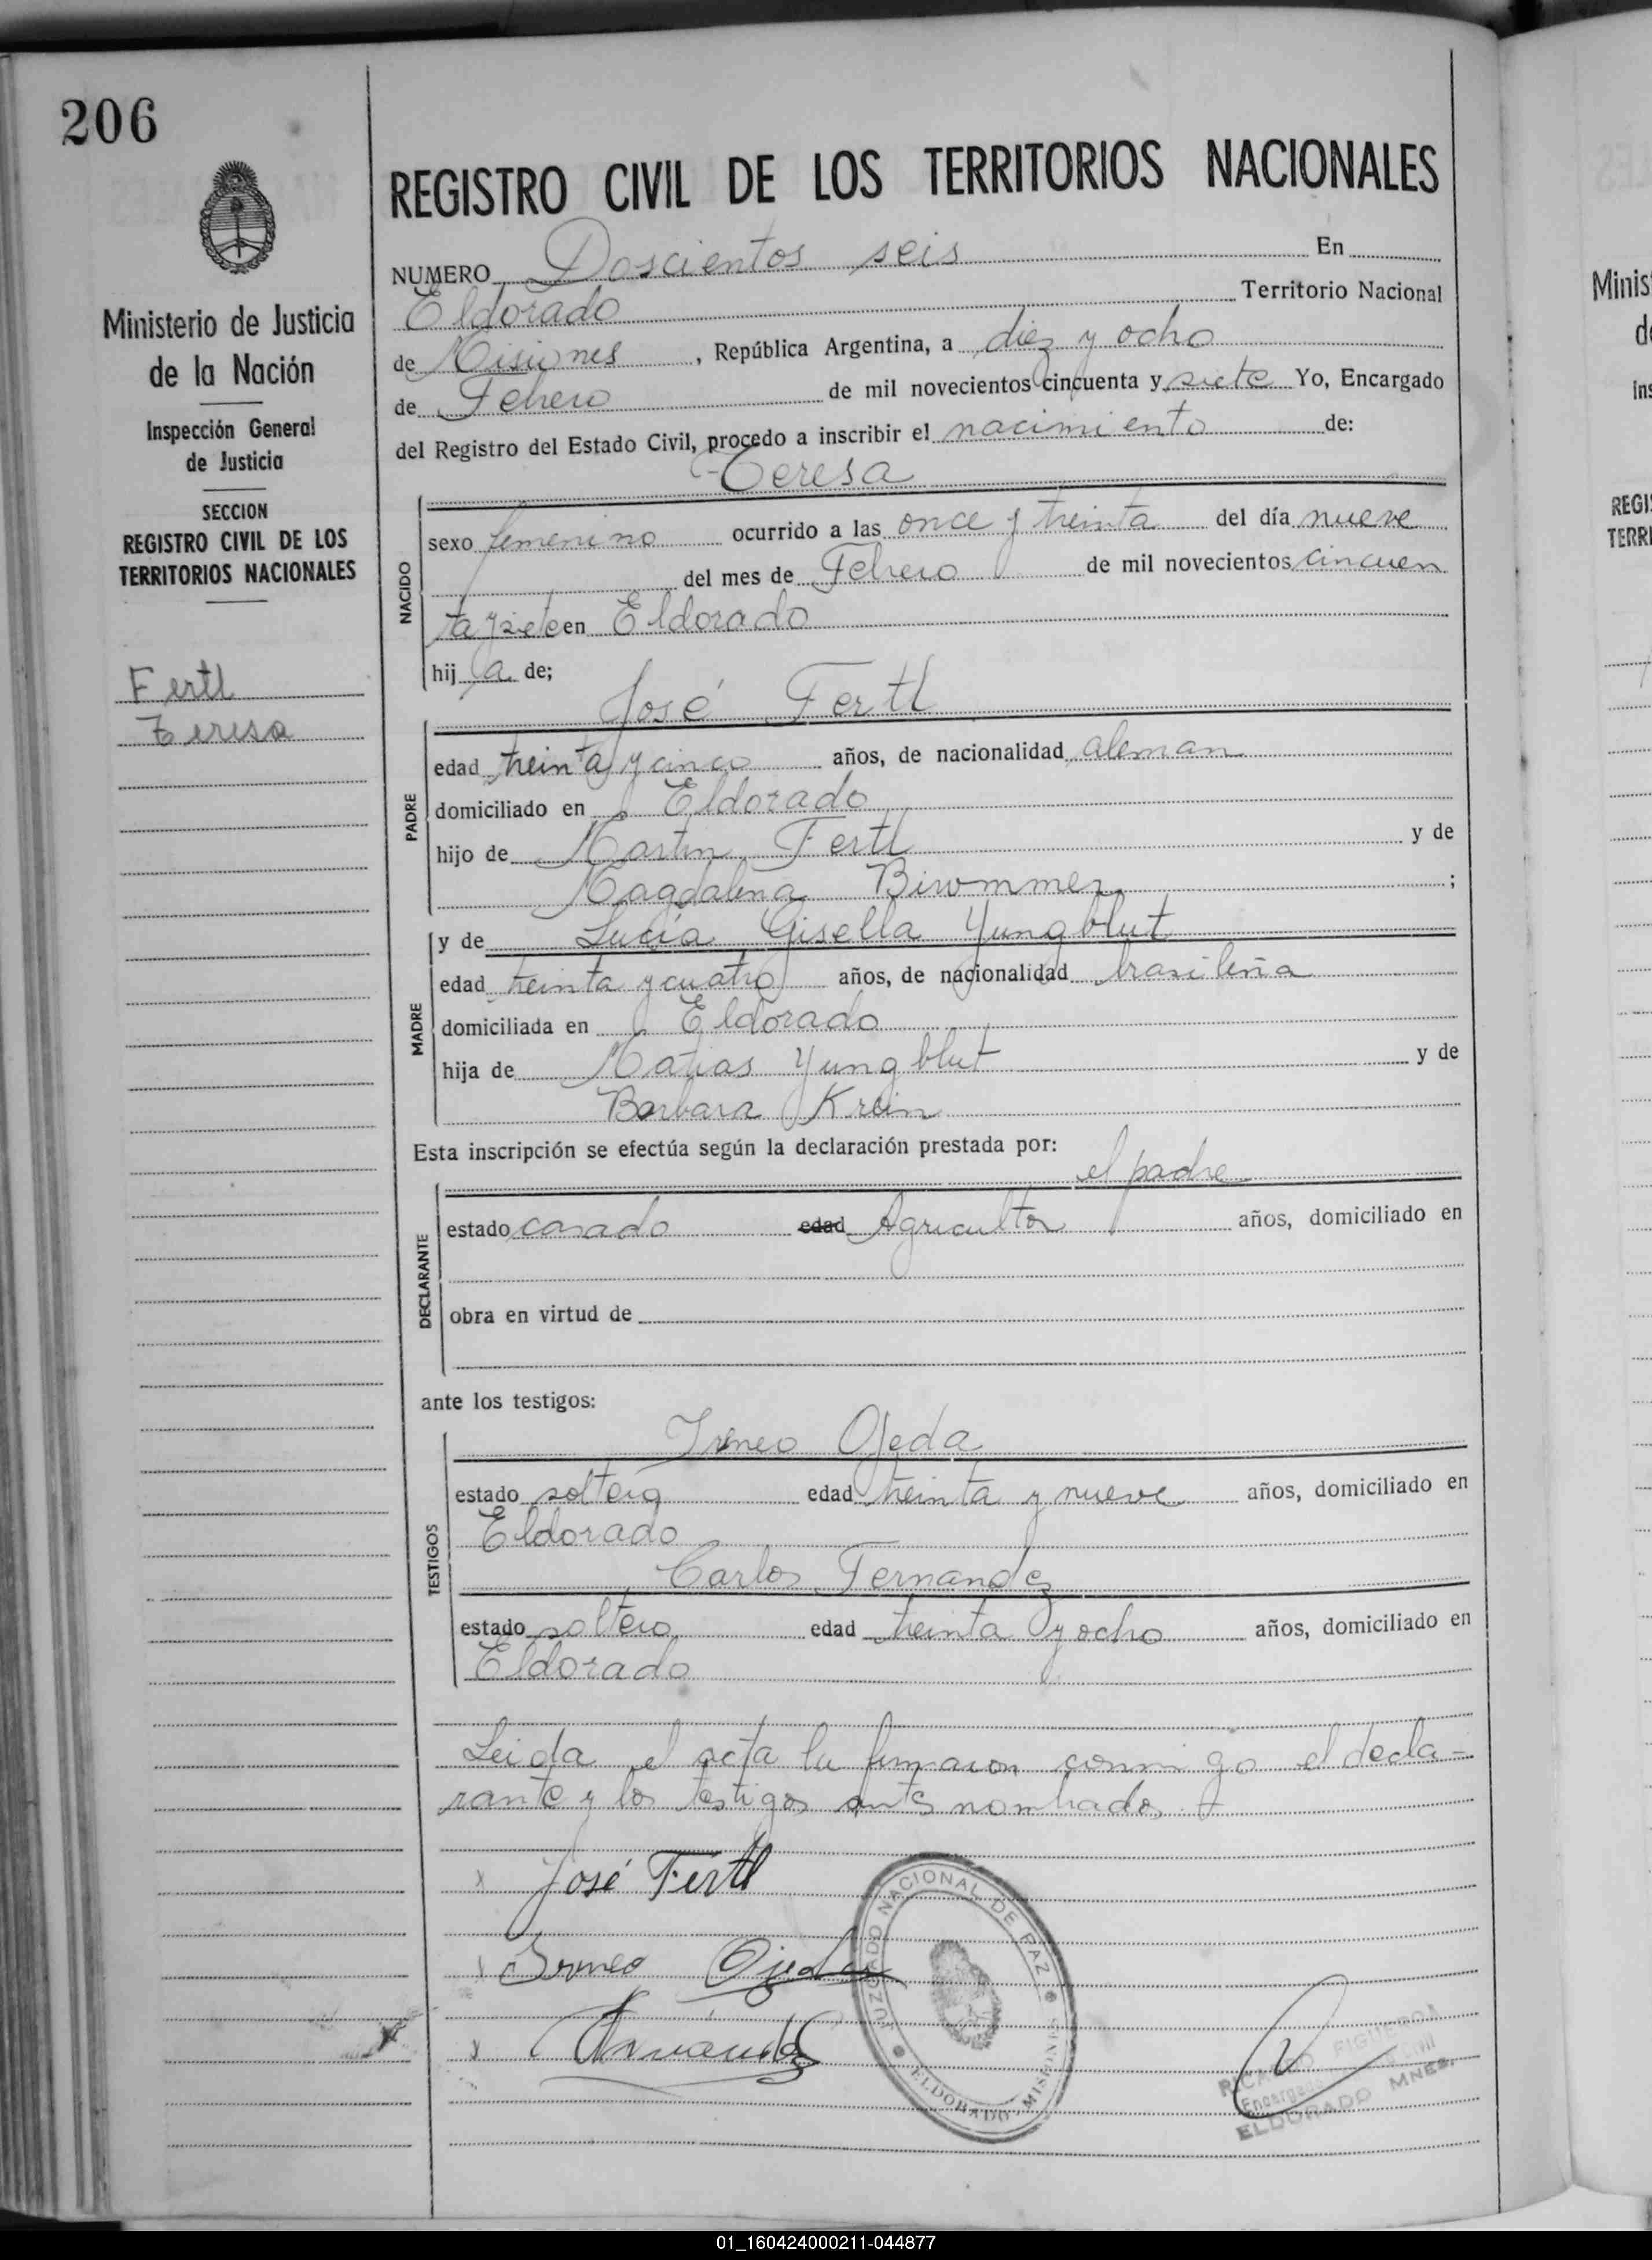 206
REGISTRO CIVIL DE LOS TERRITORIOS NACIONALES
NUMERO Doscientos seis En
Eldorado Territorio Nacional
de Misiones, República Argentina, a diez y ocho
de Febrero de mil novecientos cincuenta y siete Yo, Encargado
del Registro del Estado Civil, procedo a inscribir el nacimiento de:
Teresa
NACIDO
sexo femenino ocurrido a las once y treinta del día nueve
del mes de Febrero de mil novecientos cincuen
ta y siete en Eldorado
hij a de;
José Fertl
PADRE
edad treinta y cinco años, de nacionalidad aleman
domiciliado en Eldorado
hijo de Martin Fertl y de
Magdalena ;
y de Lucía Gisella Yungblut
MADRE
edad treinta y cuatro años, de nacionalidad brasileña
domiciliada en Eldorado
hija de Matias Yungblut y de
Barbara
Esta inscripción se efectúa según la declaración prestada por:
el padre
DECLARANTE
estado casado edad Agricultor años, domiciliado en
obra en virtud de
ante los testigos:
Ireneo Ojeda
TESTIGOS
estado soltero edad treinta y nueve años, domiciliado en
Eldorado
Carlos Fernandez
estado soltero edad treinta y ocho años, domiciliado en
Eldorado
Leida el acta la firmaron conmigo el decla-
rante y los testigos antes nombrados.
x José Fertl
x Ireneo Ojeda
x
JUZGADO NACIONAL DE PAZ
ELDORADO - MISIONES
RICARDO FIGUEROA
ELDORADO MNES.
Ministerio de Justicia
de la Nación
Inspección General
de Justicia
SECCION
REGISTRO CIVIL DE LOS
TERRITORIOS NACIONALES
Fertl
Teresa
Minis
d
Ins
REGI
TERRI
01_160424000211-044877